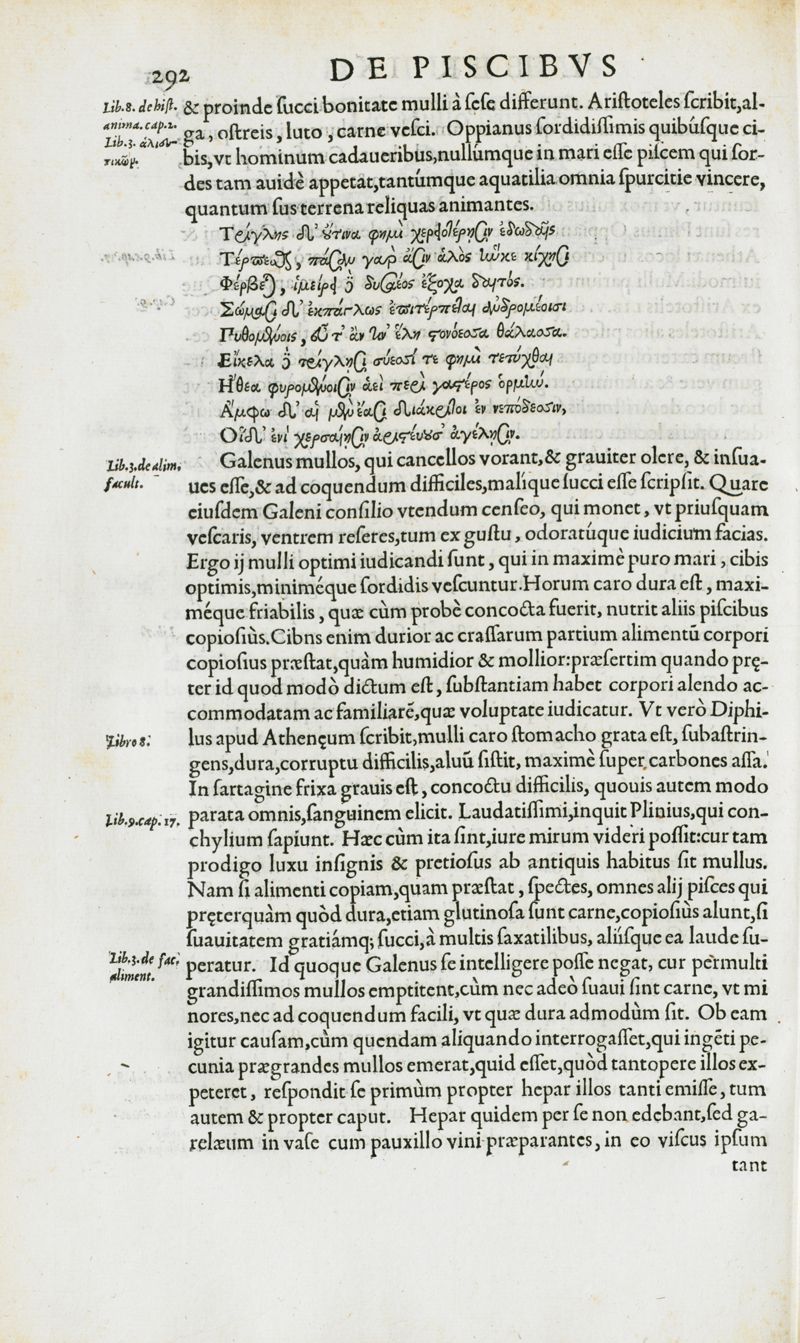 292 DE PISCIBVS
Lib.8. de hist.
anima. cap.2.
Lib.3. ἁλιευ-
τικῶν.
& proinde succi bonitate mulli à sese differunt. Aristoteles scribit, al-
ga, ostreis, luto, carne vesci. Oppianus sordidissimis quibúsque ci-
bis, vt hominum cadaueribus, nullúmque in mari esse piscem qui sor-
des tam auidè appetat, tantúmque aquatilia omnia spurcitie vincere,
quantum sus terrena reliquas animantes.
Τρίγλης δ' οὔτινα φημὶ χερειοτέρῃσιν ἐδωδαῖς
Τέρπεσθαι, πᾶσαν γαρ ἄσιν ἁλὸς ἥν κε κίχῃσι
Φέρβεται, ἱμείρει δὲ δυσαέος ἔξοχα δαιτός.
Σώμασι δ' ἐκπάγλως ἐπιτέρπεται ἀνδρομέοισι
Πυθομένοις, εὖ τ' ἄν τιν' ἕλῃ στονόεσσα θάλασσα.
Εἴκελα δὲ τρίγλῃσι σύεσσί τε φημὶ τετύχθαι
Ἤθεα φυρομένοισιν ἀεὶ περὶ γαστέρος ὁρμήν.
Ἄμφω δ' αἱ μὲν ἔασι διάκριτοι ἐν νεπόδεσσιν,
Οἱ δ' ἐνὶ χερσαίῃσιν ἀριστεύουσ' ἀγέλῃσιν.
Lib.3. de alim.
facult.
Galenus mullos, qui cancellos vorant, & grauiter olere, & insua-
ues esse, & ad coquendum difficiles, malique succi esse scripsit. Quare
eiusdem Galeni consilio vtendum censeo, qui monet, vt priusquam
vescaris, ventrem reseres, tum ex gustu, odoratúque iudicium facias.
Ergo ij mulli optimi iudicandi sunt, qui in maximè puro mari, cibis
optimis, miniméque sordidis vescuntur. Horum caro dura est, maxi-
méque friabilis, quæ cùm probè concocta fuerit, nutrit aliis piscibus
copiosiùs. Cibns enim durior ac crassarum partium alimentū corpori
copiosius præstat, quàm humidior & mollior: præsertim quando prę-
ter id quod modò dictum est, substantiam habet corpori alendo ac-
commodatam ac familiarē, quæ voluptate iudicatur. Vt verò Diphi-
Libro 8.
lus apud Athenęum scribit, mulli caro stomacho grata est, subastrin-
gens, dura, corruptu difficilis, aluū sistit, maximè super carbones assa.
In sartagine frixa grauis est, concoctu difficilis, quouis autem modo
Lib.9. cap. 17.
parata omnis, sanguinem elicit. Laudatissimi, inquit Plinius, qui con-
chylium sapiunt. Hæc cùm ita sint, iure mirum videri possit: cur tam
prodigo luxu insignis & pretiosus ab antiquis habitus sit mullus.
Nam si alimenti copiam, quam præstat, spectes, omnes alij pisces qui
pręterquàm quòd dura, etiam glutinosa sunt carne, copiosiùs alunt, si
suauitatem gratiámq; succi, à multis saxatilibus, aliísque ea laude su-
Lib.3. de fac.
aliment.
peratur. Id quoque Galenus se intelligere posse negat, cur permulti
grandissimos mullos emptitent, cùm nec adeò suaui sint carne, vt mi
nores, nec ad coquendum facili, vt quæ dura admodùm sit. Ob eam
igitur causam, cùm quendam aliquando interrogasset, qui ingēti pe-
cunia prægrandes mullos emerat, quid esset, quòd tantopere illos ex-
peteret, respondit se primùm propter hepar illos tanti emisse, tum
autem & propter caput. Hepar quidem per se non edebant, sed ga-
relæum in vase cum pauxillo vini præparantes, in eo viscus ipsum
tant